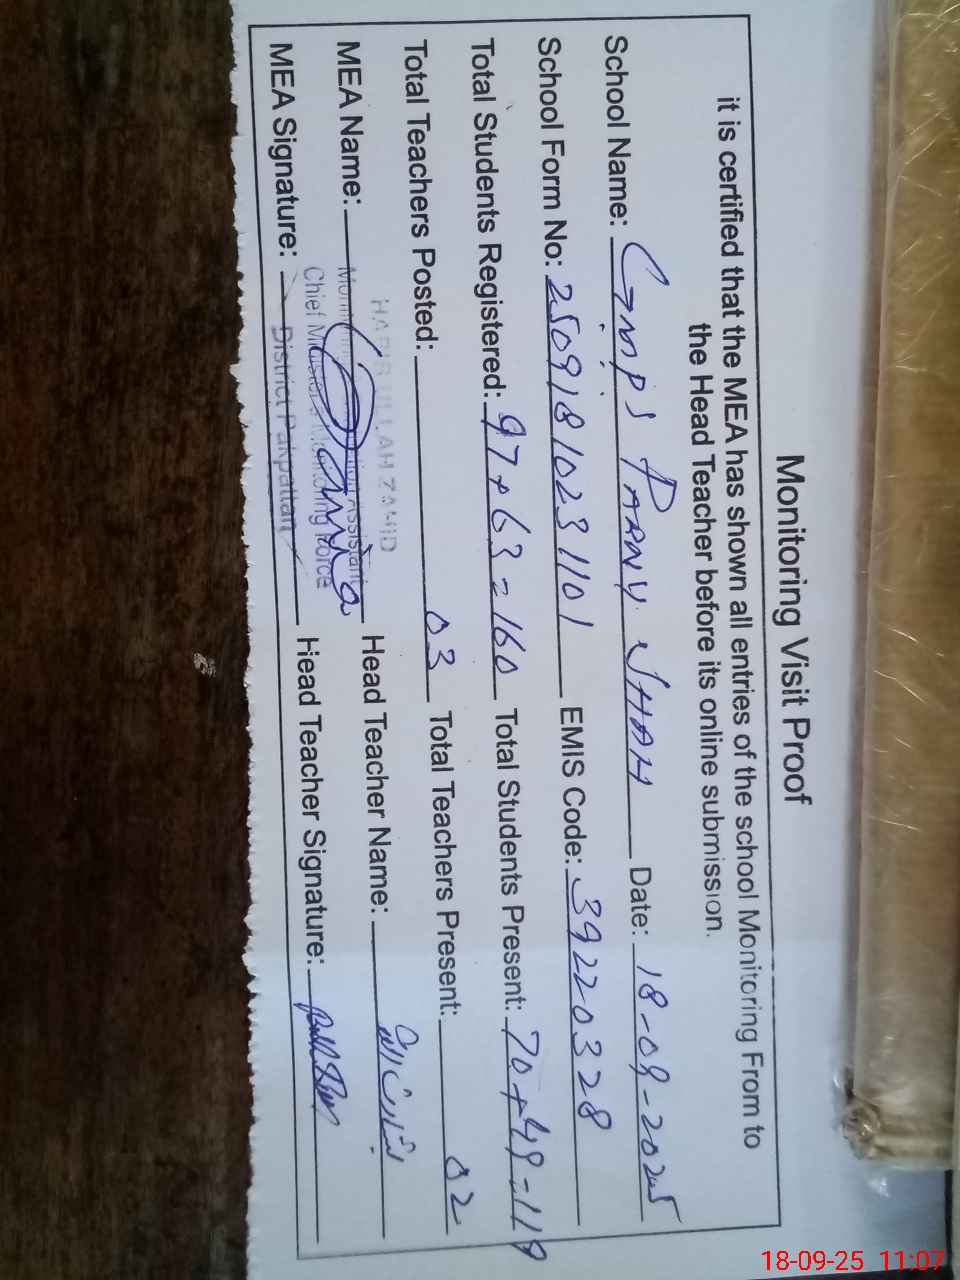 Monitoring Visit Proof
it is certified that the MEA has shown all entries of the school Monitoring From to
the Head Teacher before its online submission.
School Name: GMPS PAANU SHAH Date: 18-09-2025
School Form No: 25091810231101 EMIS Code: 39220328
Total Students Registered: 97+63=160 Total Students Present: 70+49=119
Total Teachers Posted: 03 Total Teachers Present: 02
HABIB ULLAH ZAHID
MEA Name: Head Teacher Name:
Monitoring Assistant
Chief Minister's Monitoring Force
MEA Signature: District Pakpattan Head Teacher Signature:
18-09-25 11:07